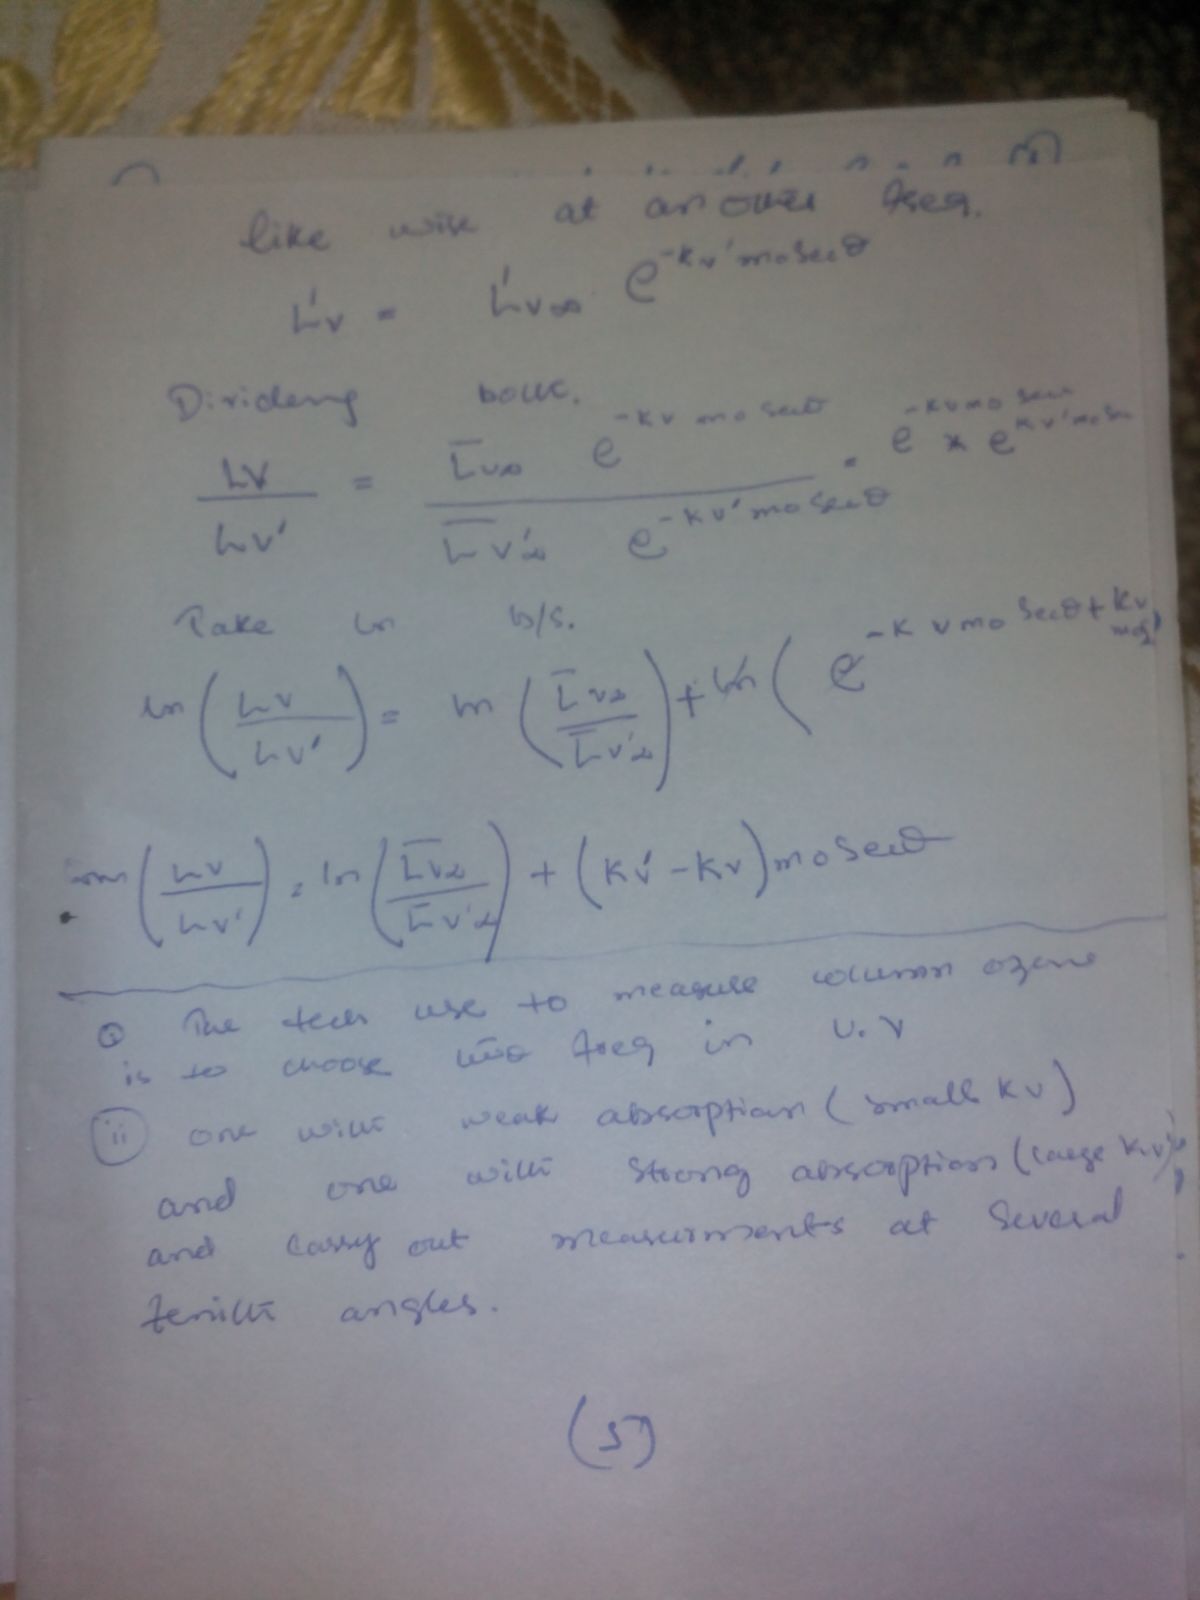 like wise at another freq.
L'ν = L'ν∞ e^{-kν' mo secθ}
Dividing both.
Lν / Lν' = L̅ν∞ e^{-kν mo secθ} / L̅ν'∞ e^{-kν' mo secθ} = e^{-kν mo sec} × e^{kν' mo sec}
Take ln b/s.
ln (Lν / Lν') = ln (L̅ν∞ / L̅ν'∞) + ln ( e^{-kν mo secθ + kν' mo}
ln (Lν / Lν') = ln (L̅ν∞ / L̅ν'∞) + (kν' - kν) mo secθ
The tech use to measure column ozone
is to choose two freq in U.V
(ii) one with weak absorption (small kν)
and one with strong absorption (large kν)
and carry out measurments at several
zenith angles.
(5)